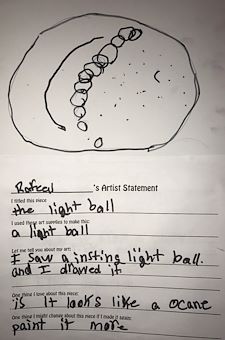 Rafeed 's Artist Statement
I titled this piece
the light ball
I used these art supplies to make this:
a light ball
Let me tell you about my art:
I Saw a insting light ball.
and I drawed it
One thing I love about this piece:
is It looks like a ocane
One thing I might change about this piece if I made it again:
paint it more